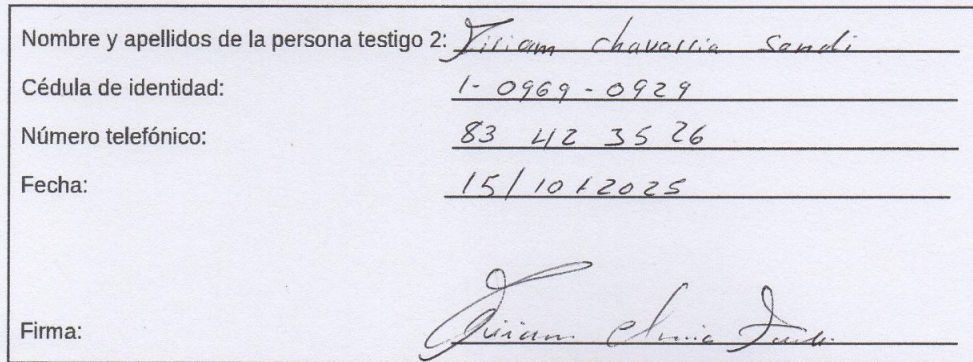 Nombre y apellidos de la persona testigo 2: Viriam chavarria Sandi
Cédula de identidad: 1-0969-0929
Número telefónico: 83 42 35 26
Fecha: 15/10/2025
Firma: